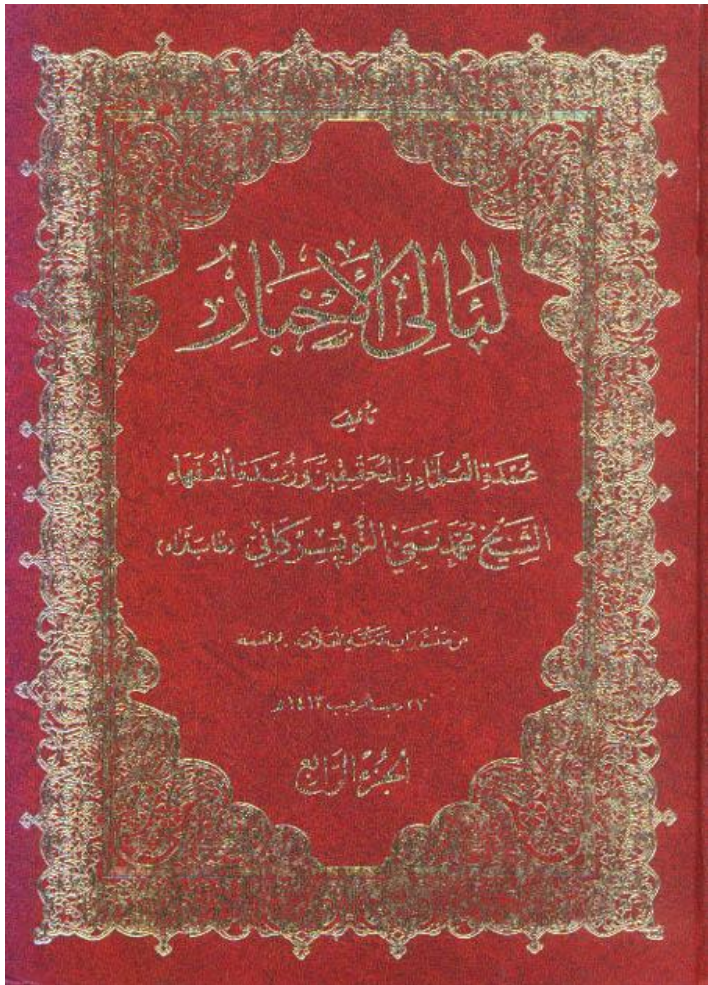 لئالی الأخبار
تألیف
عمدة العلماء والمحققین وزبدة الفقهاء
الشیخ محمد نبی التویسرکانی (طاب ثراه)
من منشورات مکتبة العلامه . قم
۲۷ رجب المرجب ۱۴۱۳ هـ
الجزء الرابع